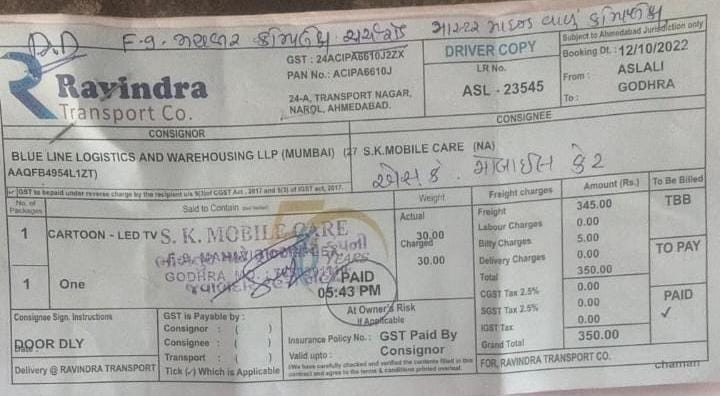 D.D F-9.
Ravindra
Transport Co.
GST : 24ACIPA6610J2ZX
PAN No.: ACIPA6610J
24-A, TRANSPORT NAGAR,
NAROL, AHMEDABAD.
DRIVER COPY
LR No.
ASL - 23545
Subject to Ahmedabad Jurisdiction only
Booking Dt. : 12/10/2022
From : ASLALI
To : GODHRA
CONSIGNOR
CONSIGNEE
BLUE LINE LOGISTICS AND WAREHOUSING LLP (MUMBAI) (27
AAQFB4954L1ZT)
S.K.MOBILE CARE (NA)
એસ કે . મોબાઈલ કેર
GST to bepaid under reverse charge by the recipient u/s 9(3)of CGST Act , 2017 and 5(3) of IGST act, 2017.
No. of Packages
Said to Contain
Weight
Freight charges
Amount (Rs.)
To Be Billed
1 CARTOON - LED TV
1 One
Actual
30.00
Charged
30.00
Freight 345.00
Labour Charges 0.00
Bilty Charges 5.00
Delivery Charges 0.00
Total 350.00
CGST Tax 2.5% 0.00
SGST Tax 2.5% 0.00
IGST Tax 0.00
Grand Total 350.00
TBB
TO PAY
PAID
✓
S. K. MOBILE CARE
GODHRA
YEARS
PAID
05:43 PM
Consignee Sign. Instructions
DOOR DLY
Delivery @ RAVINDRA TRANSPORT
GST is Payable by :
Consignor : ( )
Consignee : ( )
Transport : ( )
Tick (✓) Which is Applicable
At Owner's Risk
If Applicable
Insurance Policy No.: GST Paid By
Valid upto : Consignor
We have carefully checked and verified the contents filled in this
contract and agree to the terms & conditions printed overleaf.
FOR, RAVINDRA TRANSPORT CO.
chaman